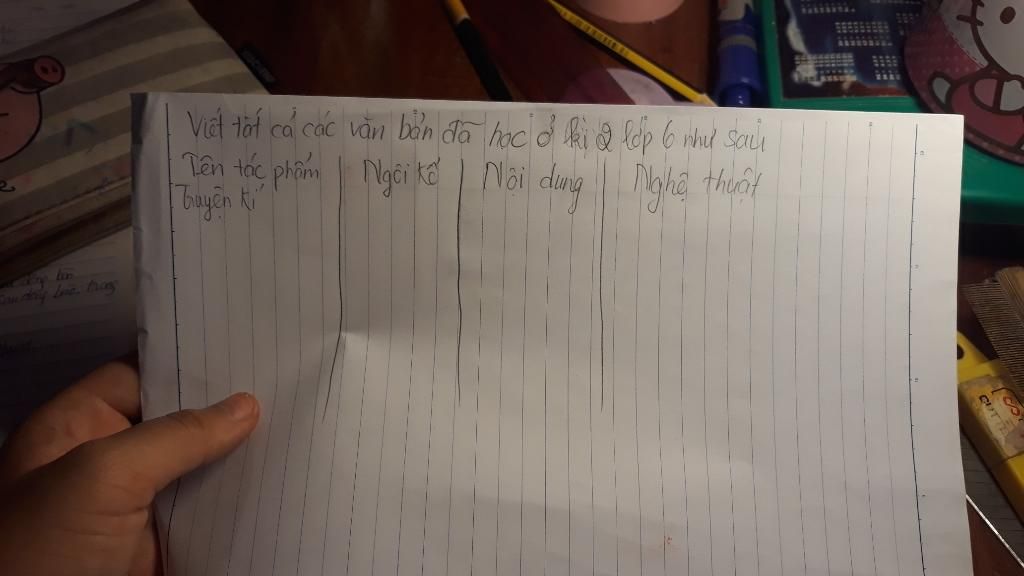 Viết tất cả các văn bản đã học ở kì 2 lớp 6 như sau
Tên tác phẩm Ngôi kể Nội dung Nghệ thuật
Truyện kí